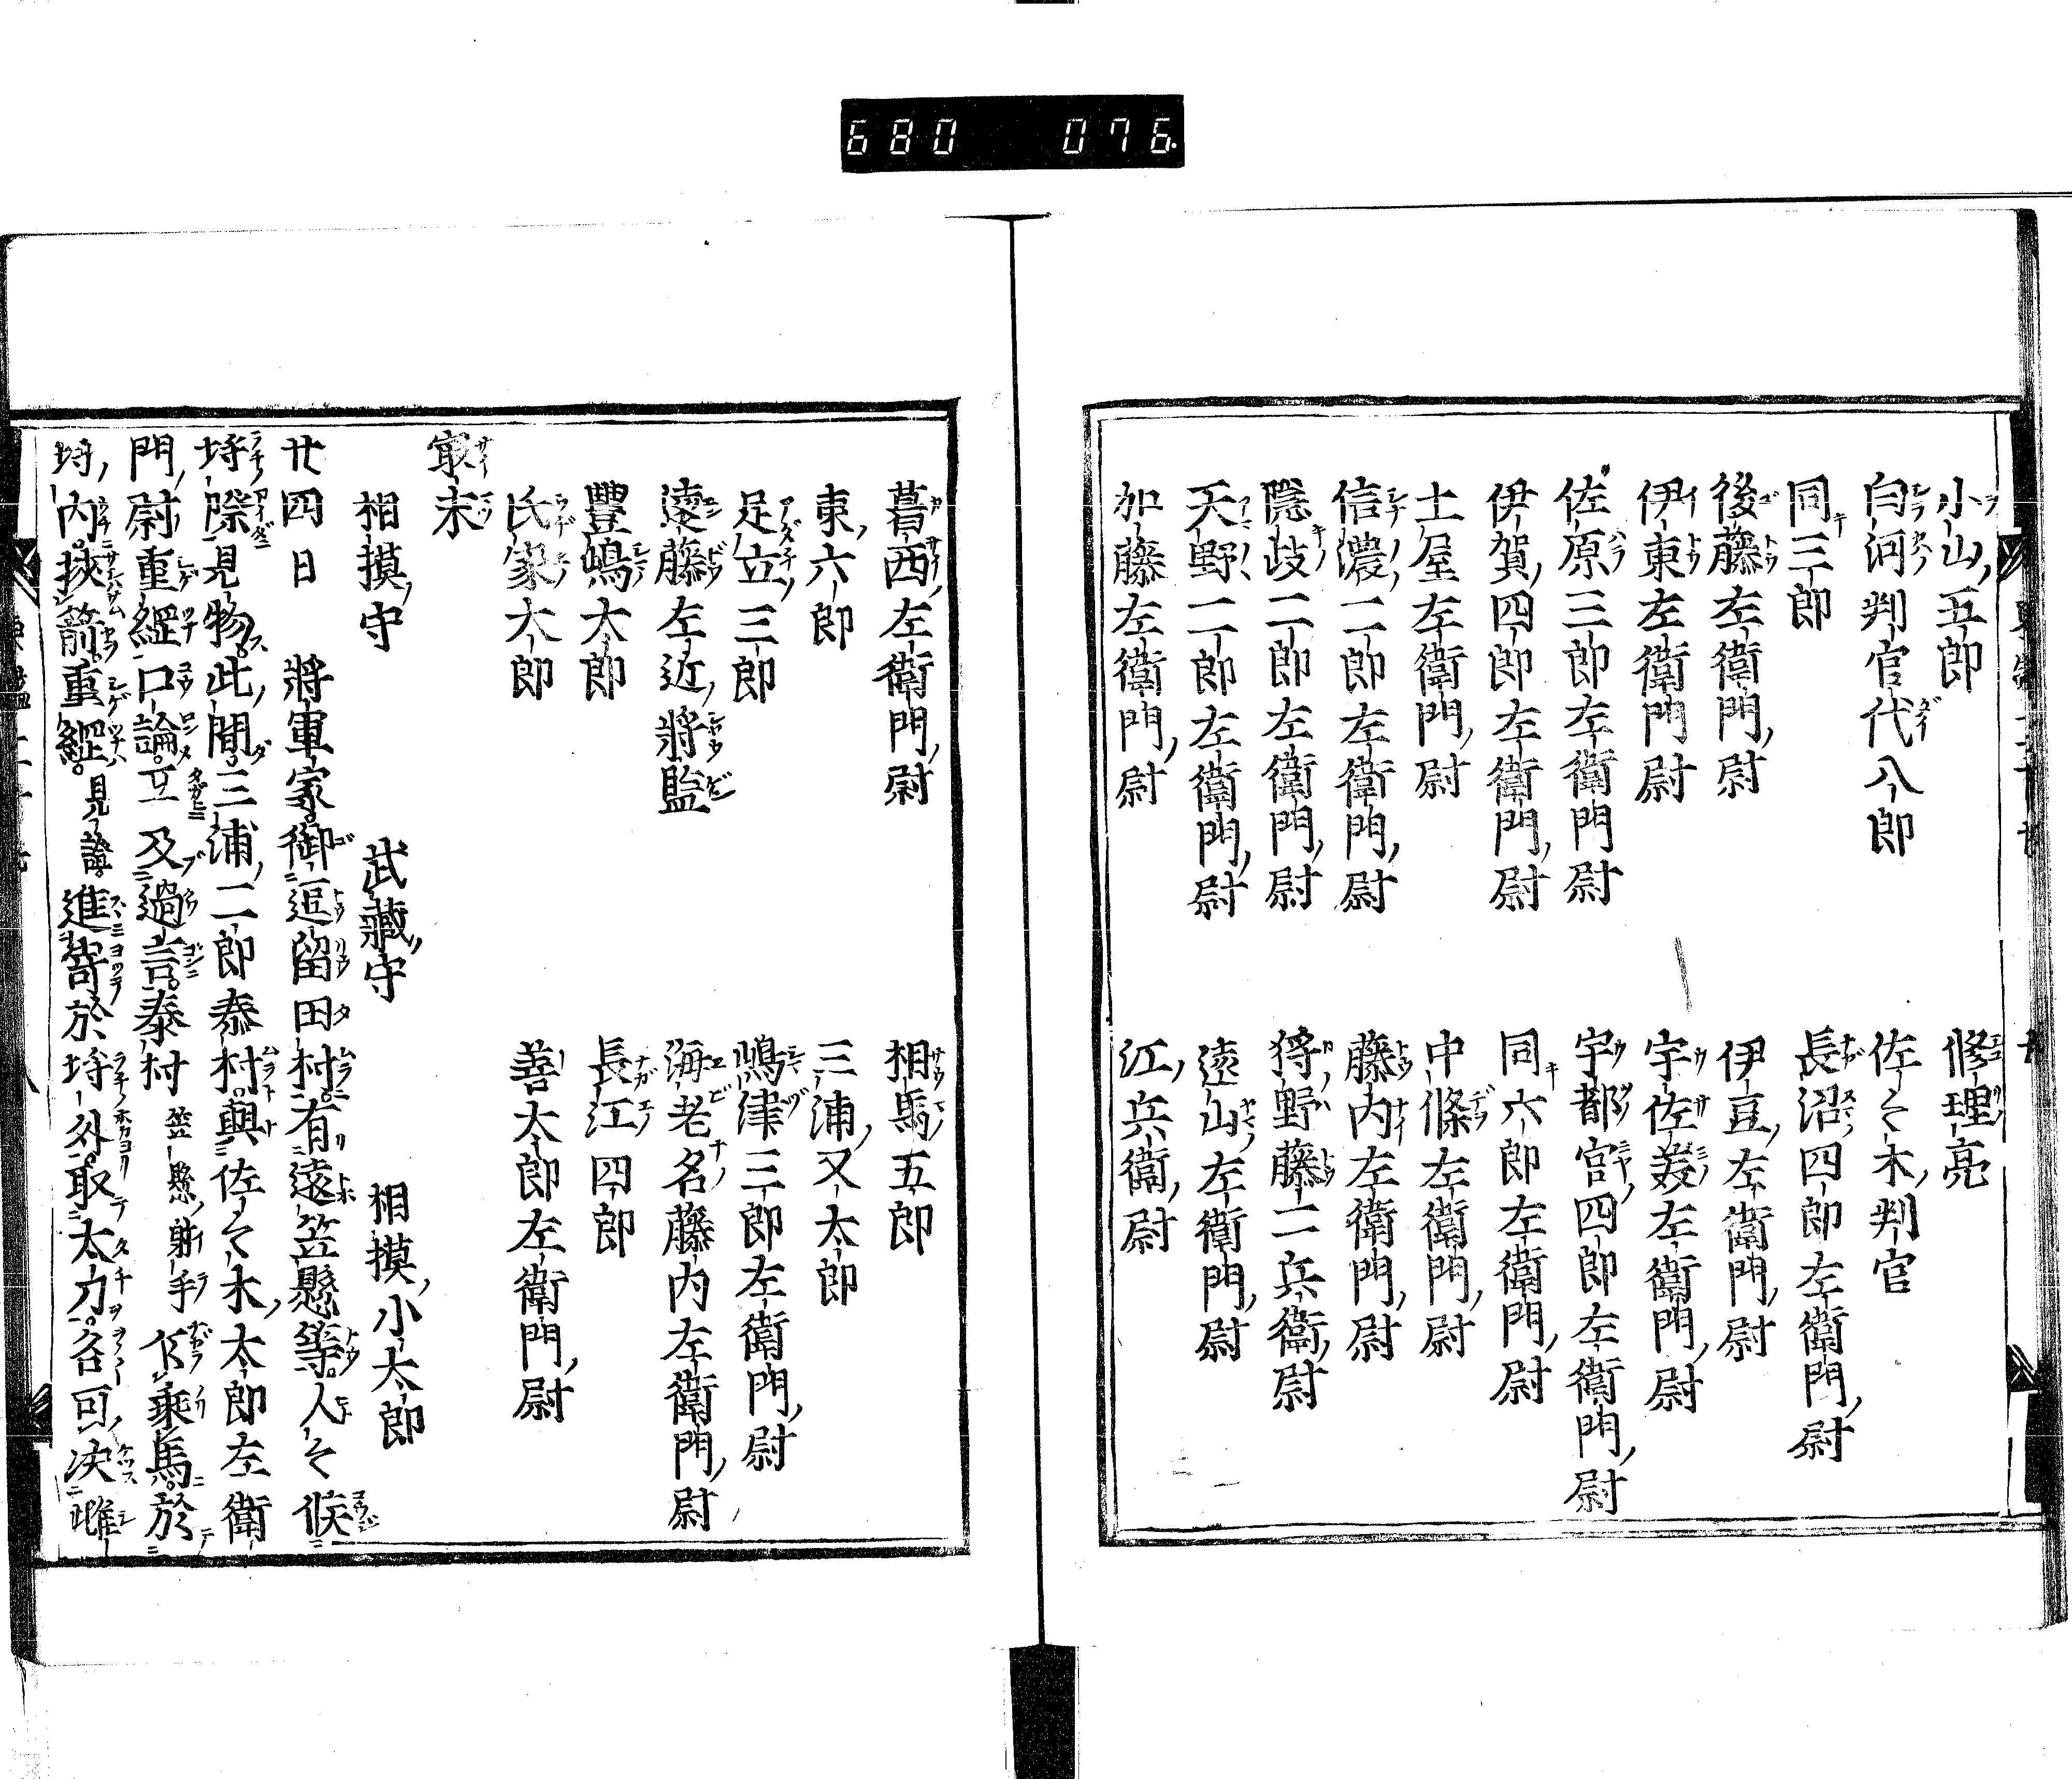 680 076
小山五郎 修理亮
白河判官代八郎 佐々木判官
同三郎 長沼四郎左衛門尉
後藤左衛門尉 伊豆左衛門尉
伊東左衛門尉 宇佐美左衛門尉
佐原三郎左衛門尉 宇都宮四郎左衛門尉
伊賀四郎左衛門尉 同六郎左衛門尉
土屋左衛門尉 中條左衛門尉
信濃二郎左衛門尉 藤内左衛門尉
隠岐二郎左衛門尉 狩野藤二兵衛尉
天野二郎左衛門尉 遠山左衛門尉
加藤左衛門尉 江兵衛尉
葛西左衛門尉 相馬五郎
東六郎 三浦又太郎
足立三郎 鳴津三郎左衛門尉
遠藤左近將監 海老名藤内左衛門尉
豐嶋太郎 長江四郎
氏家太郎 善太郎左衛門尉
最末
相摸守 武藏守 相摸小太郎
廿四日 將軍家御逗留田村有遠笠懸等人々候
埓際見物此間三浦二郎泰村與佐々木太郎左衛
門尉重綱口論互及過言泰村笠懸射手乍乘馬於
埓内挾箭重綱見證進寄於埓外取太刀各可决雌